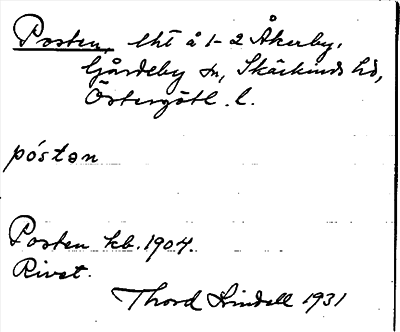 Posten, lht å 1-2 Åkerby,
Gårdeby sn, Skärkinds hd,
Östergötl. l.
pós̀tən
Posten kb. 1904.
Rivet.
Thord Lindell 1931